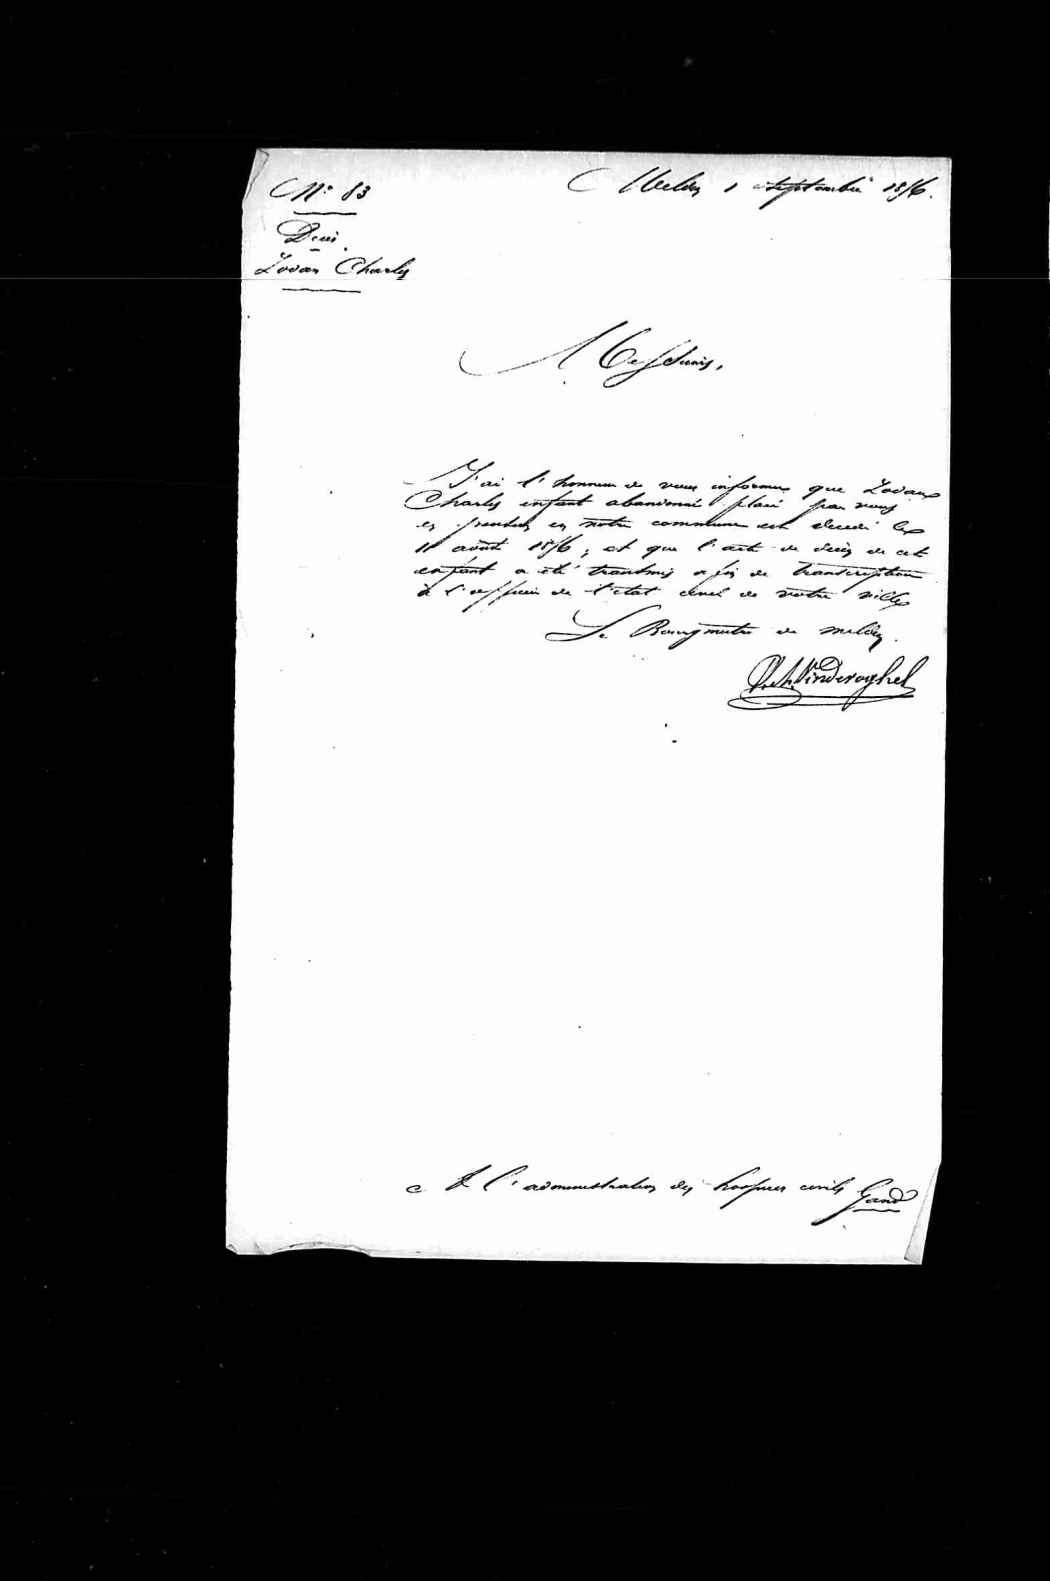 N° 83
Melden 1 septembre 1876.
Décès
Zodan Charles
Messieurs,
J'ai l'honneur de vous informer que Zodan
Charles enfant abandonné placé par vous
en pension en notre commune est décédé le
11 août 1876, et que l'acte de décès de cet
enfant a été transmis a fin de transcription
à l'officier de l'état civil de votre ville
Le Bourgmestre de Melden.
Vindevoghel
A l'administration des hospices civils Gand